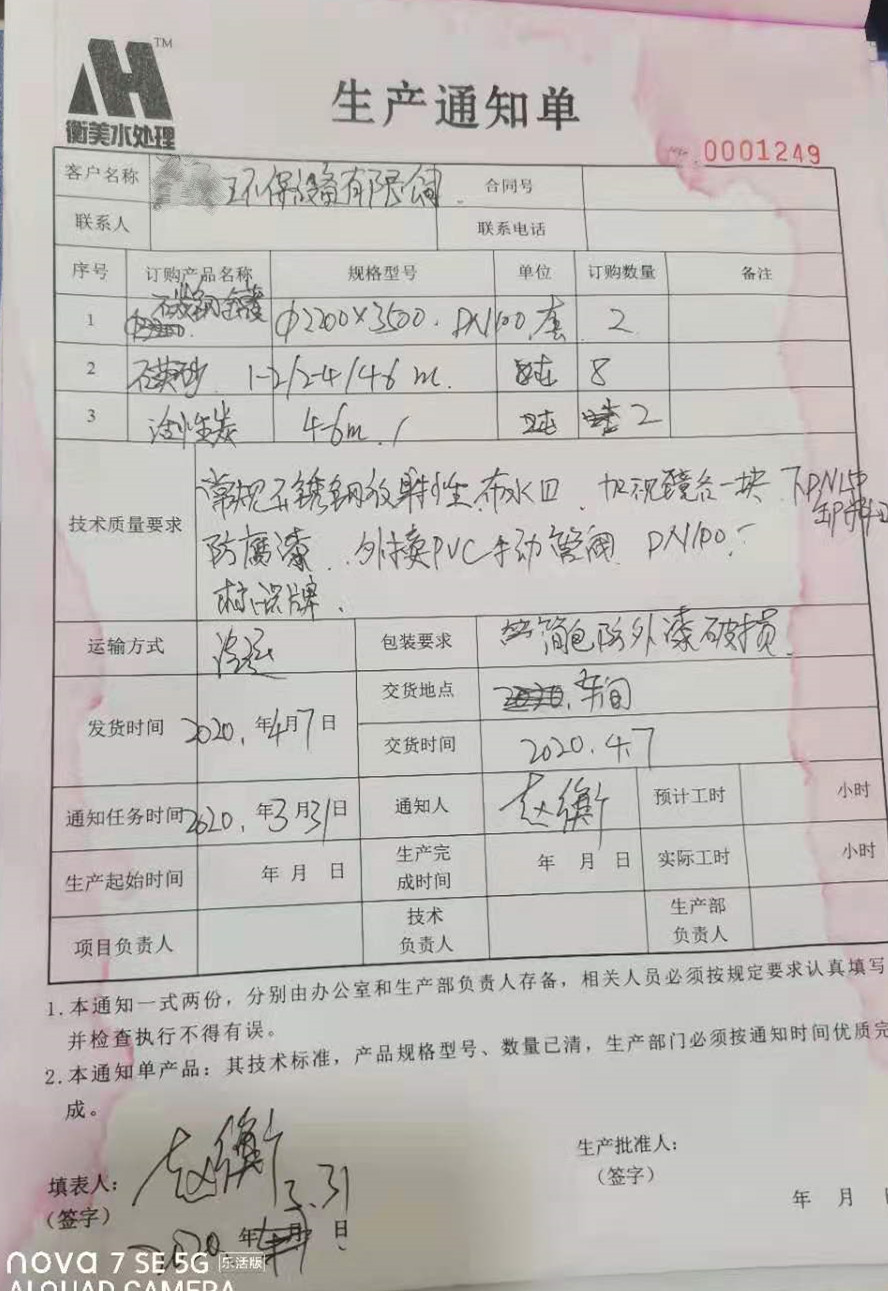 TM
衡美水处理
生产通知单
No.0001249
客户名称 环保设备有限公司 合同号
联系人 联系电话
序号 订购产品名称 规格型号 单位 订购数量 备注
1 碳钢 Φ2200×3500. DN100. 套 2
2 石英砂 1-2/2-4/4-6 m. 吨 8
3 活性炭 4-6m. 吨 2
技术质量要求 常规不锈钢放射性布水 加视镜各一块
防腐漆. 外接PVC手动管阀 DN100.
标识牌.
运输方式 包装要求 简包防外漆破损
发货时间 2020.年4月7日 交货地点 车间
交货时间 2020.4.7
通知任务时间 2020.年3月31日 通知人 赵衡 预计工时 小时
生产起始时间 年 月 日 生产完成时间 年 月 日 实际工时 小时
项目负责人 技术负责人 生产部负责人
1.本通知一式两份，分别由办公室和生产部负责人存备，相关人员必须按规定要求认真填写
并检查执行不得有误。
2.本通知单产品：其技术标准，产品规格型号、数量已清，生产部门必须按通知时间优质完
成。
填表人： 赵衡
（签字）
3.31
2020.年 月 日
生产批准人：
（签字）
年 月
nova 7 SE 5G 乐活版
AI QUAD CAMERA